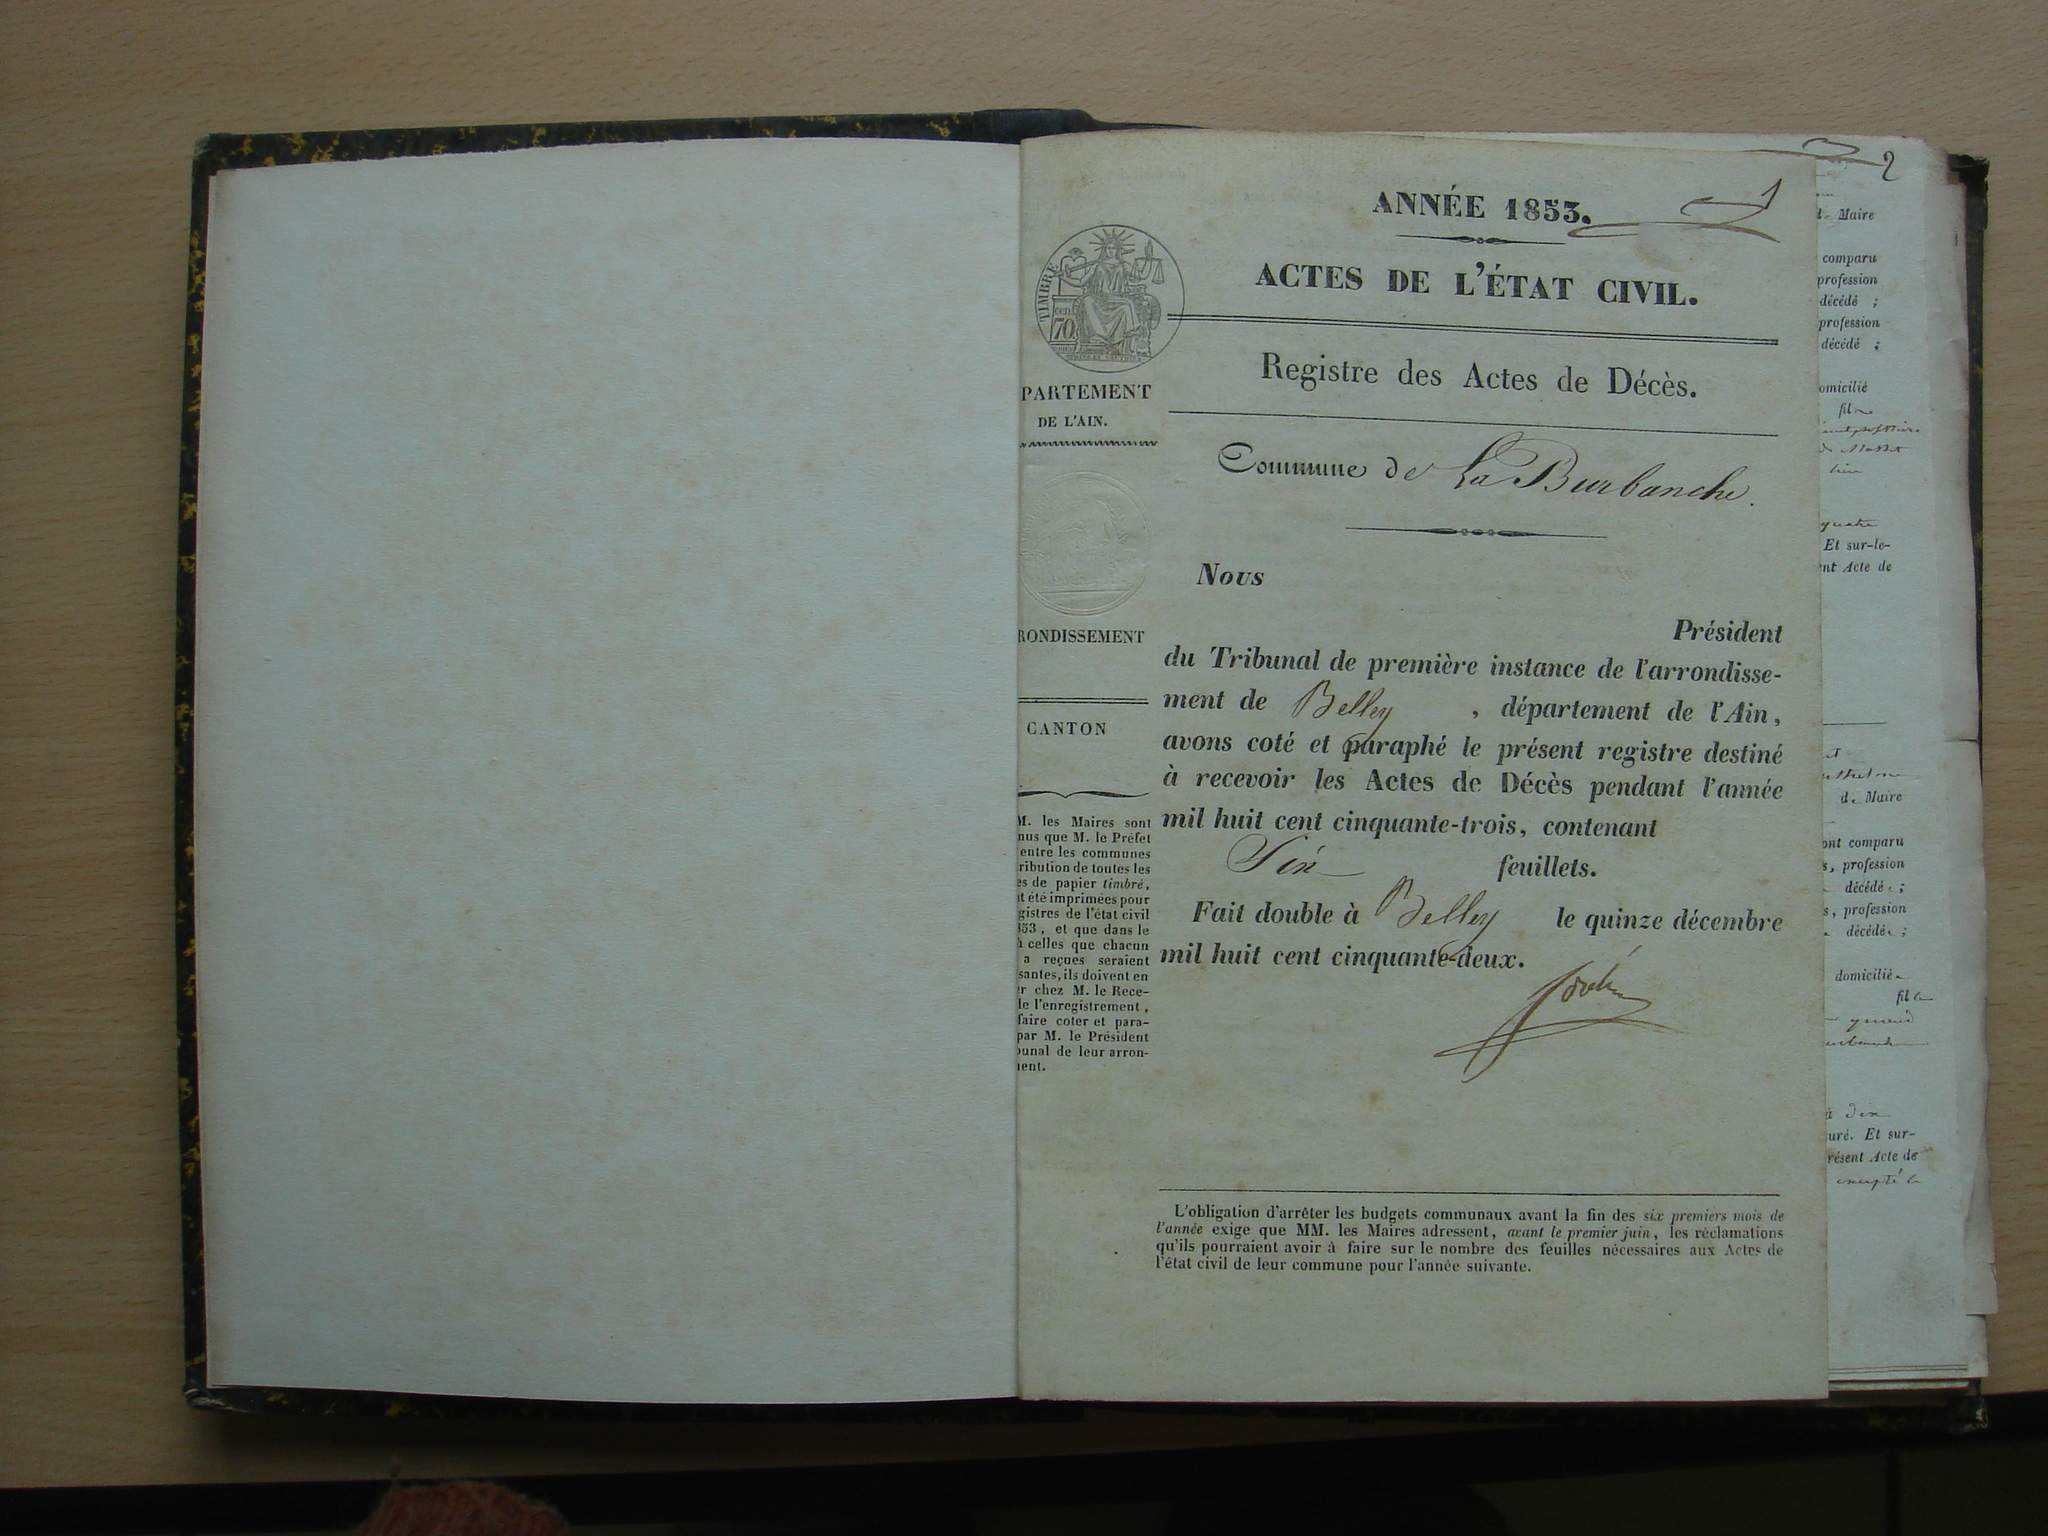 ANNÉE 1853.
1
ACTES DE L'ÉTAT CIVIL.
Registre des Actes de Décès.
Commune de La Burbanche.
Nous
Président
du Tribunal de première instance de l'arrondisse-
ment de Belley, département de l'Ain,
avons coté et paraphé le présent registre destiné
à recevoir les Actes de Décès pendant l'année
mil huit cent cinquante-trois, contenant
Six feuillets.
Fait double à Belley le quinze décembre
mil huit cent cinquante-deux.
L'obligation d'arrêter les budgets communaux avant la fin des six premiers mois de
l'année exige que MM. les Maires adressent, avant le premier juin, les réclamations
qu'ils pourraient avoir à faire sur le nombre des feuilles nécessaires aux Actes de
l'état civil de leur commune pour l'année suivante.
TIMBRE
70
PARTEMENT
DE L'AIN.
RONDISSEMENT
CANTON
M. les Maires sont
nus que M. le Préfet
entre les communes
ribution de toutes les
es de papier timbré,
t été imprimées pour
gistres de l'état civil
853, et que dans le
celles que chacun
a reçues seraient
santes, ils doivent en
r chez M. le Rece-
de l'enregistrement,
faire coter et para-
par M. le Président
unal de leur arron-
ent.
2
Maire
comparu
profession
décédé ;
profession
décédé ;
omicilié
fil
quatre
Et sur-le-
nt Acte de
de Maire
ont comparu
s, profession
décédé ;
s, profession
décédé ;
domicilié
fil
à dix
uré. Et sur-
résent Acte de
excepté le